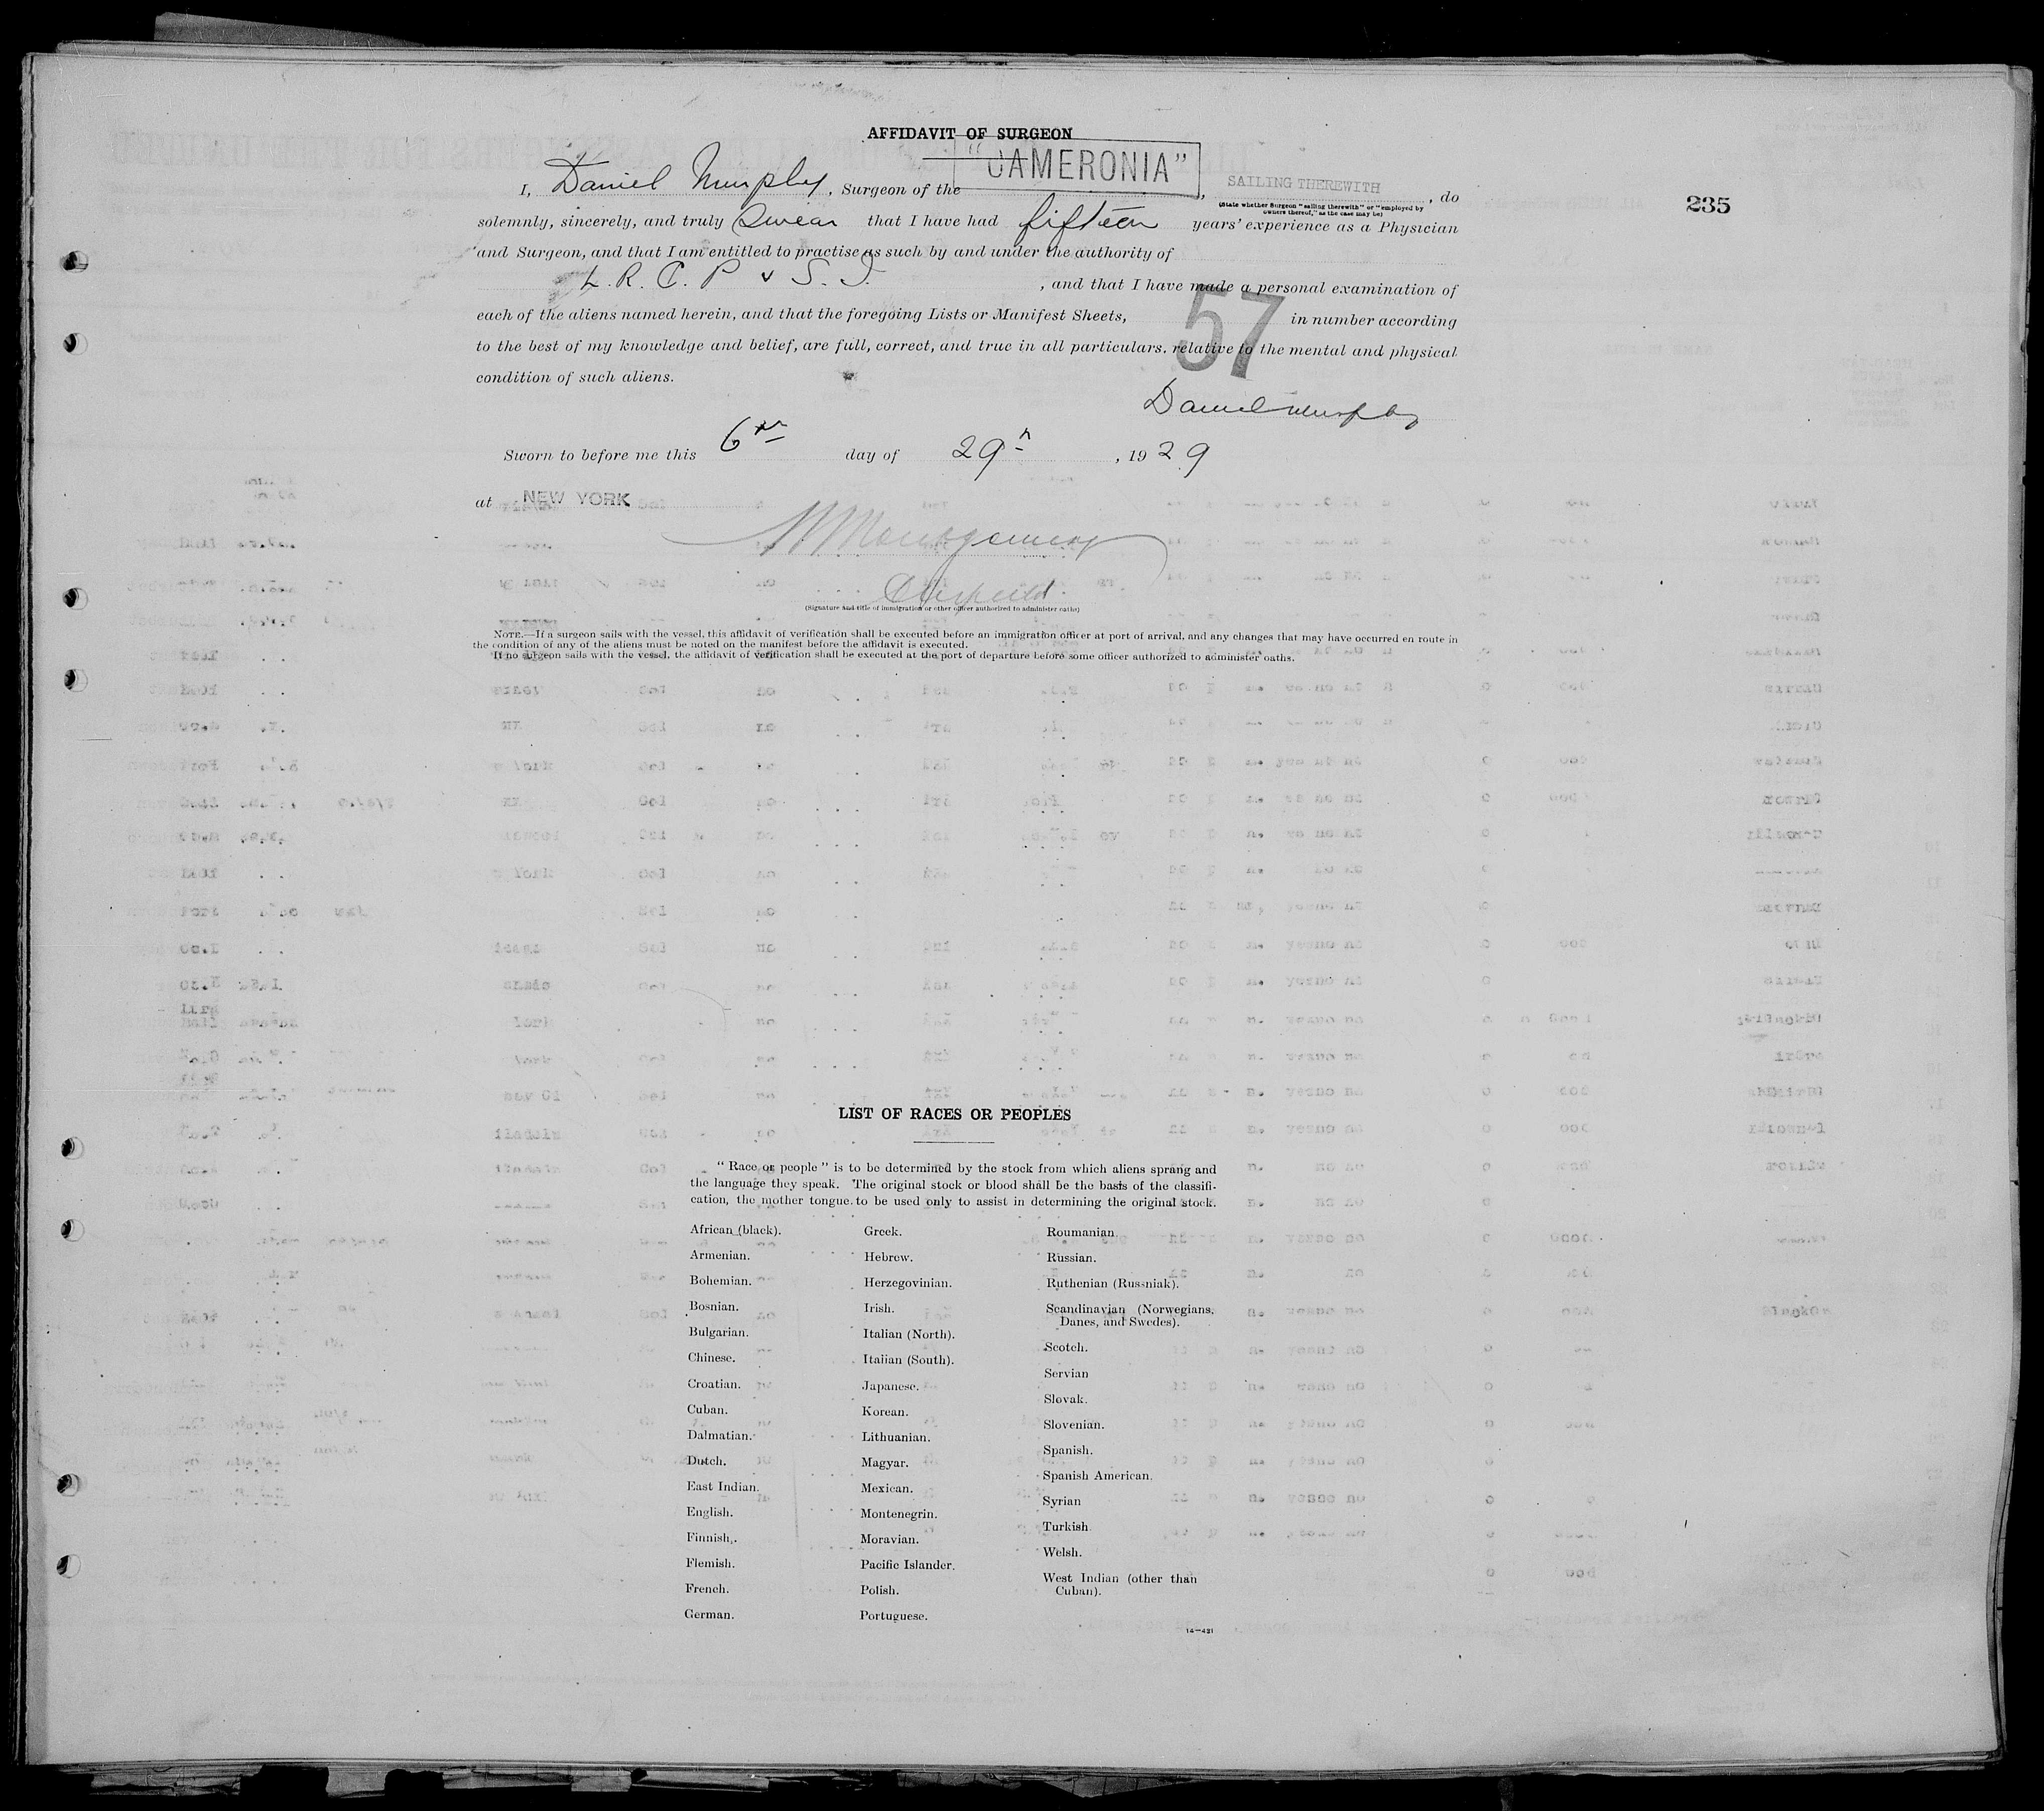 AFFIDAVIT OF SURGEON
I, Daniel Murphy, Surgeon of the "CAMERONIA", SAILING THEREWITH, do
(State whether Surgeon "sailing therewith" or "employed by
owners thereof," as the case may be)
235
solemnly, sincerely, and truly swear that I have had fifteen years' experience as a Physician
and Surgeon, and that I am entitled to practise as such by and under the authority of
L. R. C. P & S. I. , and that I have made a personal examination of
each of the aliens named herein, and that the foregoing Lists or Manifest Sheets, 57 in number according
to the best of my knowledge and belief, are full, correct, and true in all particulars. relative to the mental and physical
condition of such aliens.
Daniel Murphy
Sworn to before me this 6th day of 29th, 1929
at NEW YORK
Montgomery
(Signature and title of immigration or other officer authorized to administer oaths)
NOTE.—If a surgeon sails with the vessel, this affidavit of verification shall be executed before an immigration officer at port of arrival, and any changes that may have occurred en route in
the condition of any of the aliens must be noted on the manifest before the affidavit is executed.
If no surgeon sails with the vessel, the affidavit of verification shall be executed at the port of departure before some officer authorized to administer oaths.
LIST OF RACES OR PEOPLES
"Race or people" is to be determined by the stock from which aliens sprang and
the language they speak. The original stock or blood shall be the basis of the classifi-
cation, the mother tongue to be used only to assist in determining the original stock.
African (black).
Armenian.
Bohemian.
Bosnian.
Bulgarian.
Chinese.
Croatian.
Cuban.
Dalmatian.
Dutch.
East Indian.
English.
Finnish.
Flemish.
French.
German.
Greek.
Hebrew.
Herzegovinian.
Irish.
Italian (North).
Italian (South).
Japanese.
Korean.
Lithuanian.
Magyar.
Mexican.
Montenegrin.
Moravian.
Pacific Islander.
Polish.
Portuguese.
Roumanian.
Russian.
Ruthenian (Russniak).
Scandinavian (Norwegians,
Danes, and Swedes).
Scotch.
Servian
Slovak.
Slovenian.
Spanish.
Spanish American.
Syrian
Turkish
Welsh.
West Indian (other than
Cuban).
14—421